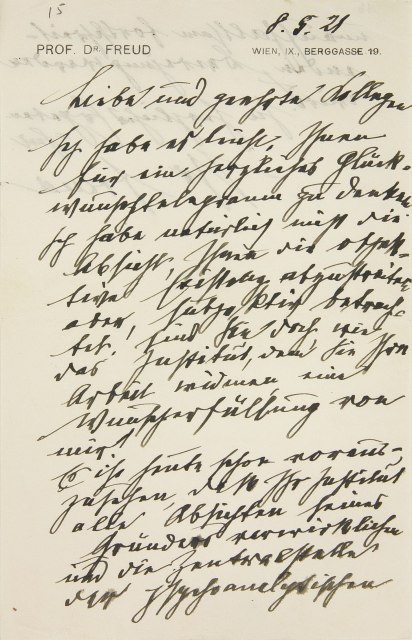 15
8. 5. 21
PROF. DR. FREUD
WIEN, IX., BERGGASSE 19.
Liebe und geehrte Kollegen
Ich habe es leicht, Ihnen
für ein herzliches Glück-
wunschtelegramm zu danken
Ich habe natürlich nicht die
Absicht, Ihnen die objek-
tive Leistung abzustreiten
aber, subjektiv betrach-
tet, sind Sie doch wie
das Institut, dem Sie Ihre
Arbeit widmen eine
Wunscherfüllung von
mir.
Es ist heute schon voraus-
zusehen, daß Ihr Institut
alle Absichten seines
Gründers verwirklichen
und die Zentralstelle
der psychoanalytischen